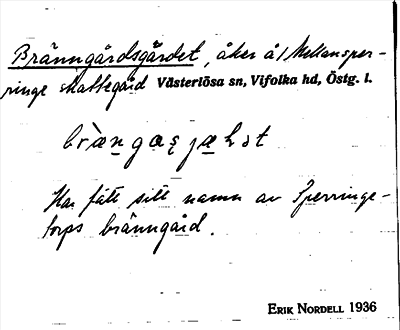 Bränngårdsgärdet, åker å/ Mellansper-
ringe skattegård Västerlösa sn, Vifolka hd, Östg. l.
Har fått sitt namn av Sperringe-
torps bränngård.
ERIK NORDELL 1936